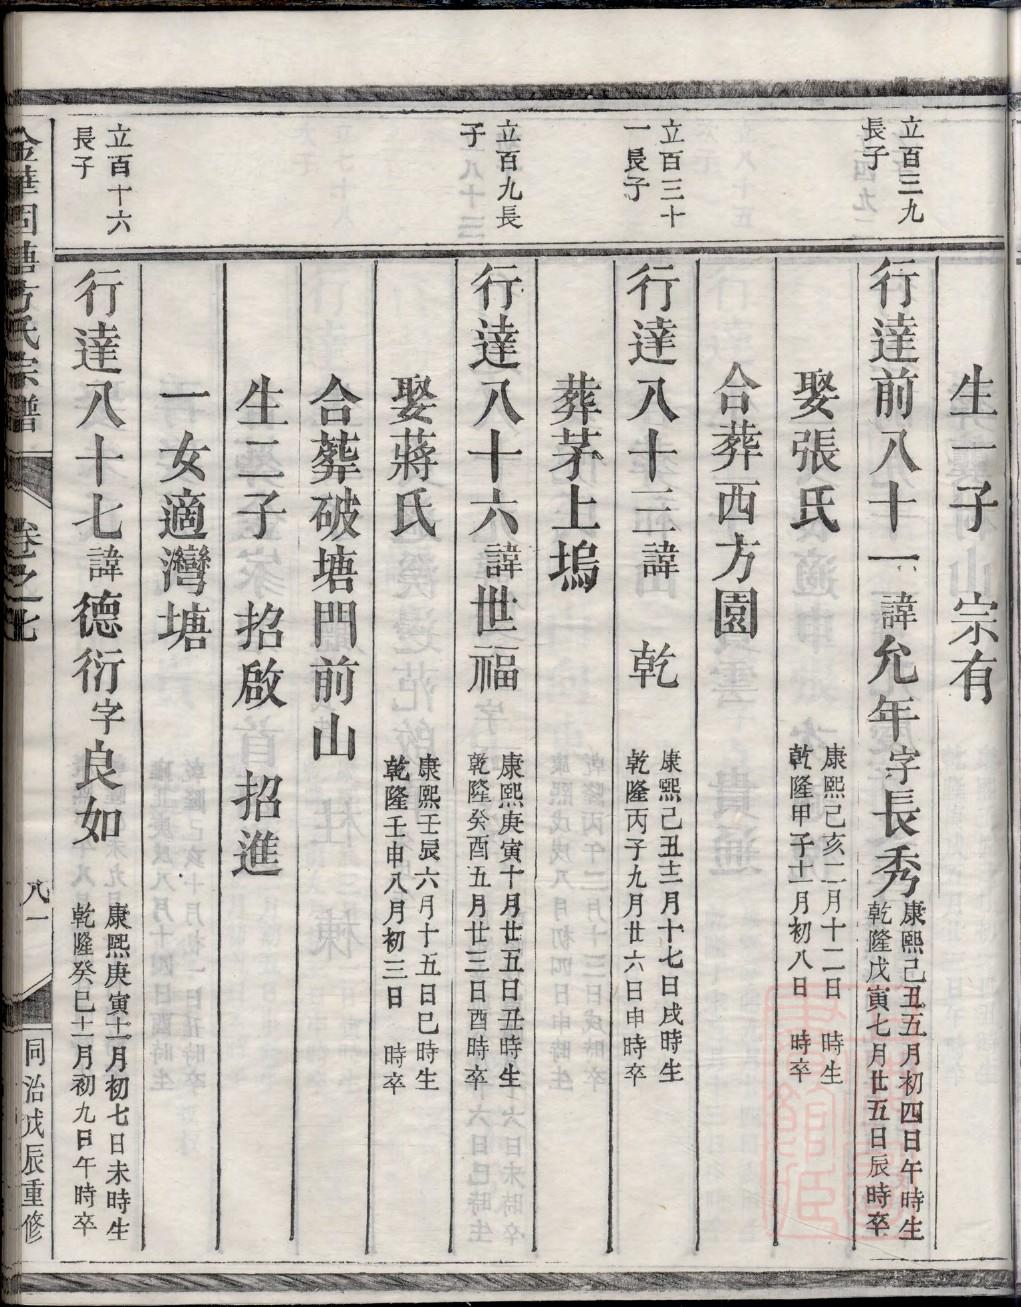 生一子 宗有
立百三九
長子
行達前八十一諱允年字長秀
康熙己丑五月初四日午時生
乾隆戊寅七月廿五日辰時卒
娶張氏
康熙己亥二月十二日 時生
乾隆甲子十一月初八日 時卒
合葬西方園
立百三十
一長子
行達八十三諱 乾
康熙己丑十二月十七日戌時生
乾隆丙子九月廿六日申時卒
葬茅上塢
立百九長
子
行達八十六諱世福
康熙庚寅十月廿五日丑時生
乾隆癸酉五月廿三日酉時卒
娶蔣氏
康熙壬辰六月十五日巳時生
乾隆壬申八月初三日 時卒
合葬破塘門前山
生二子 招啟 招進
一女適灣塘
立百十六
長子
行達八十七諱德衍字良如
康熙庚寅十一月初七日未時生
乾隆癸巳十一月初九日午時卒
金華固塘方氏宗譜
卷之七
八一
同治戊辰重修